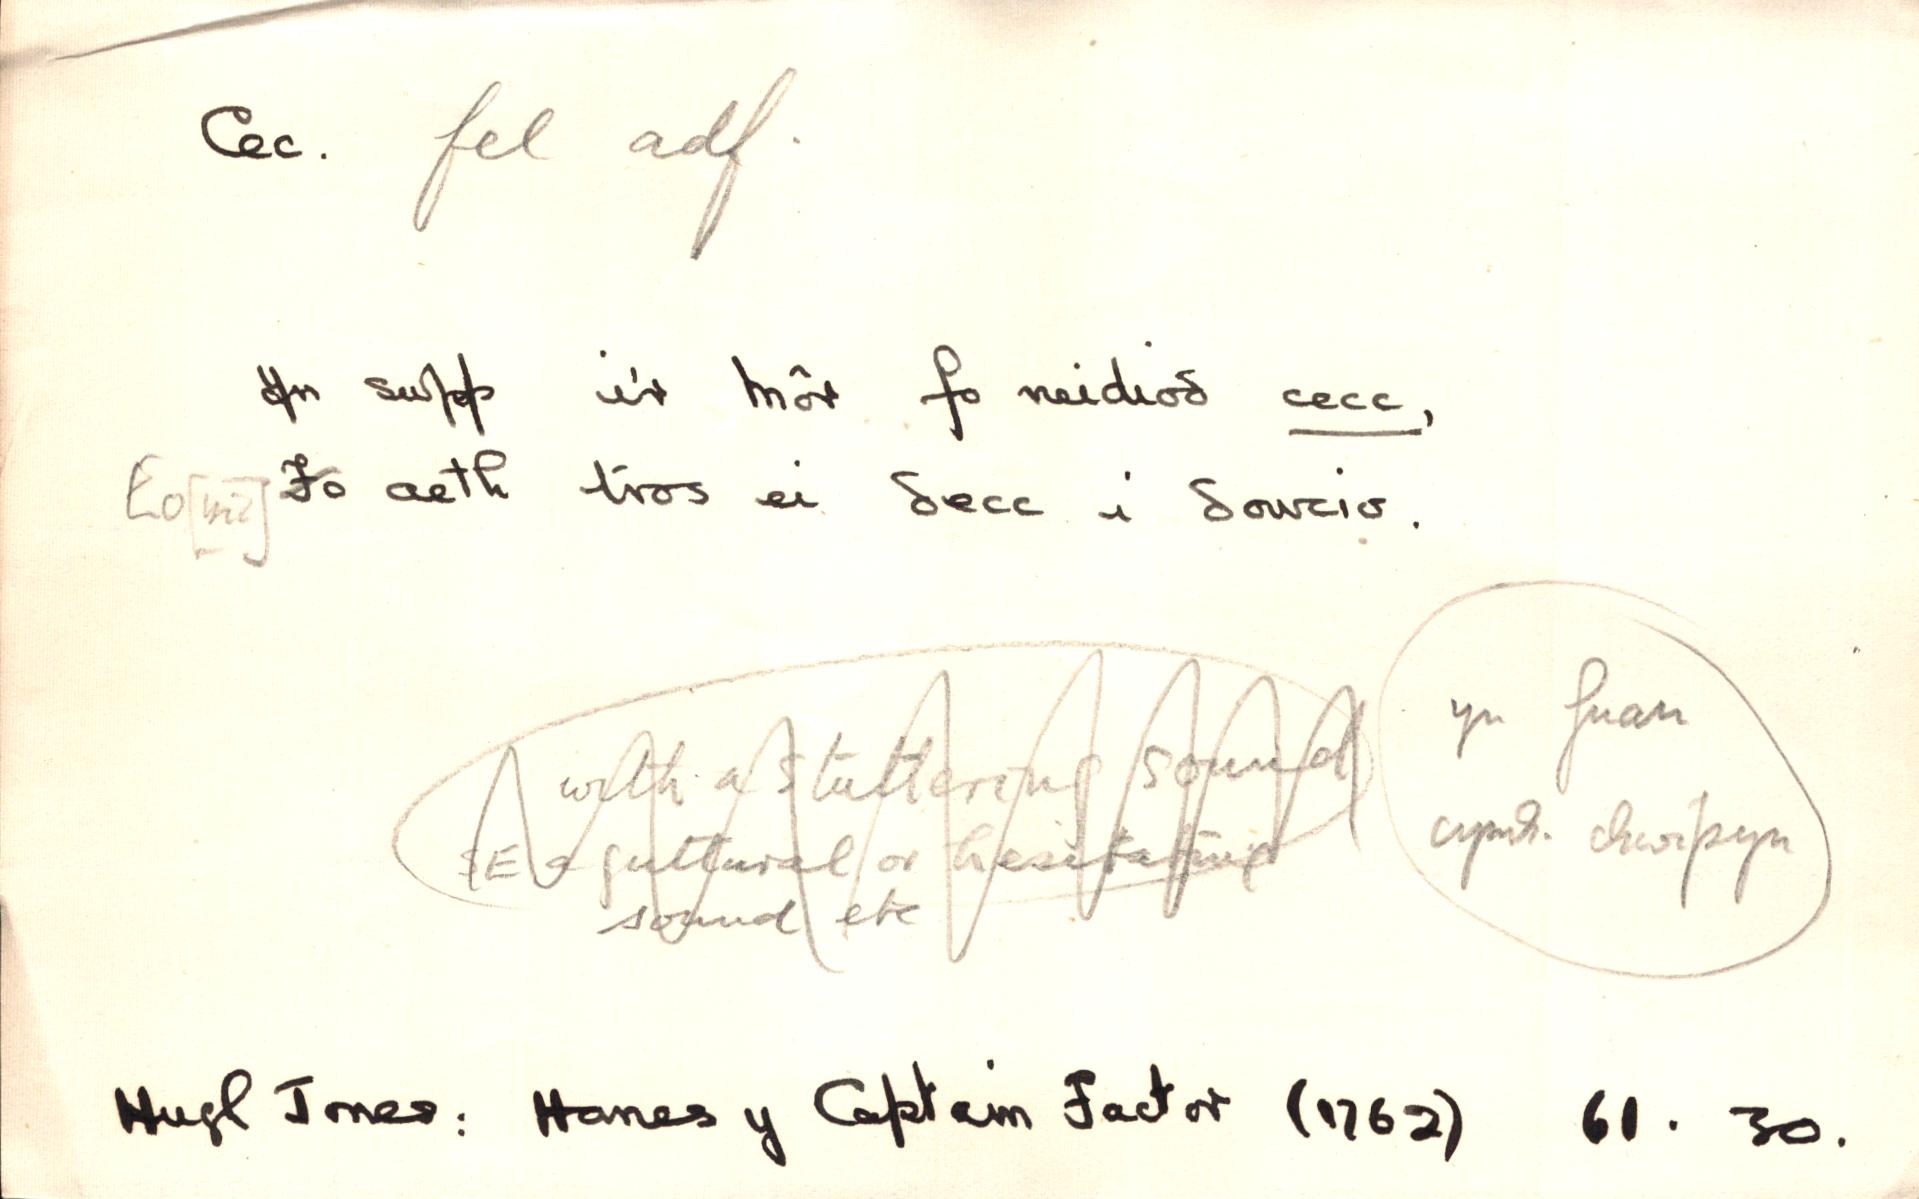 Cec. fel adf.
Yn swpp i'r môr fo neidioδ cecc,
Eo[tiz] Fo aeth tros ei δecc i δowcio.
with a stuttering sound
SE a guttural or hesitating
sound etc
yn fuan
cymh. chwipyn
Hugh Jones: Hanes y Captain Factor (1762) 61. 30.